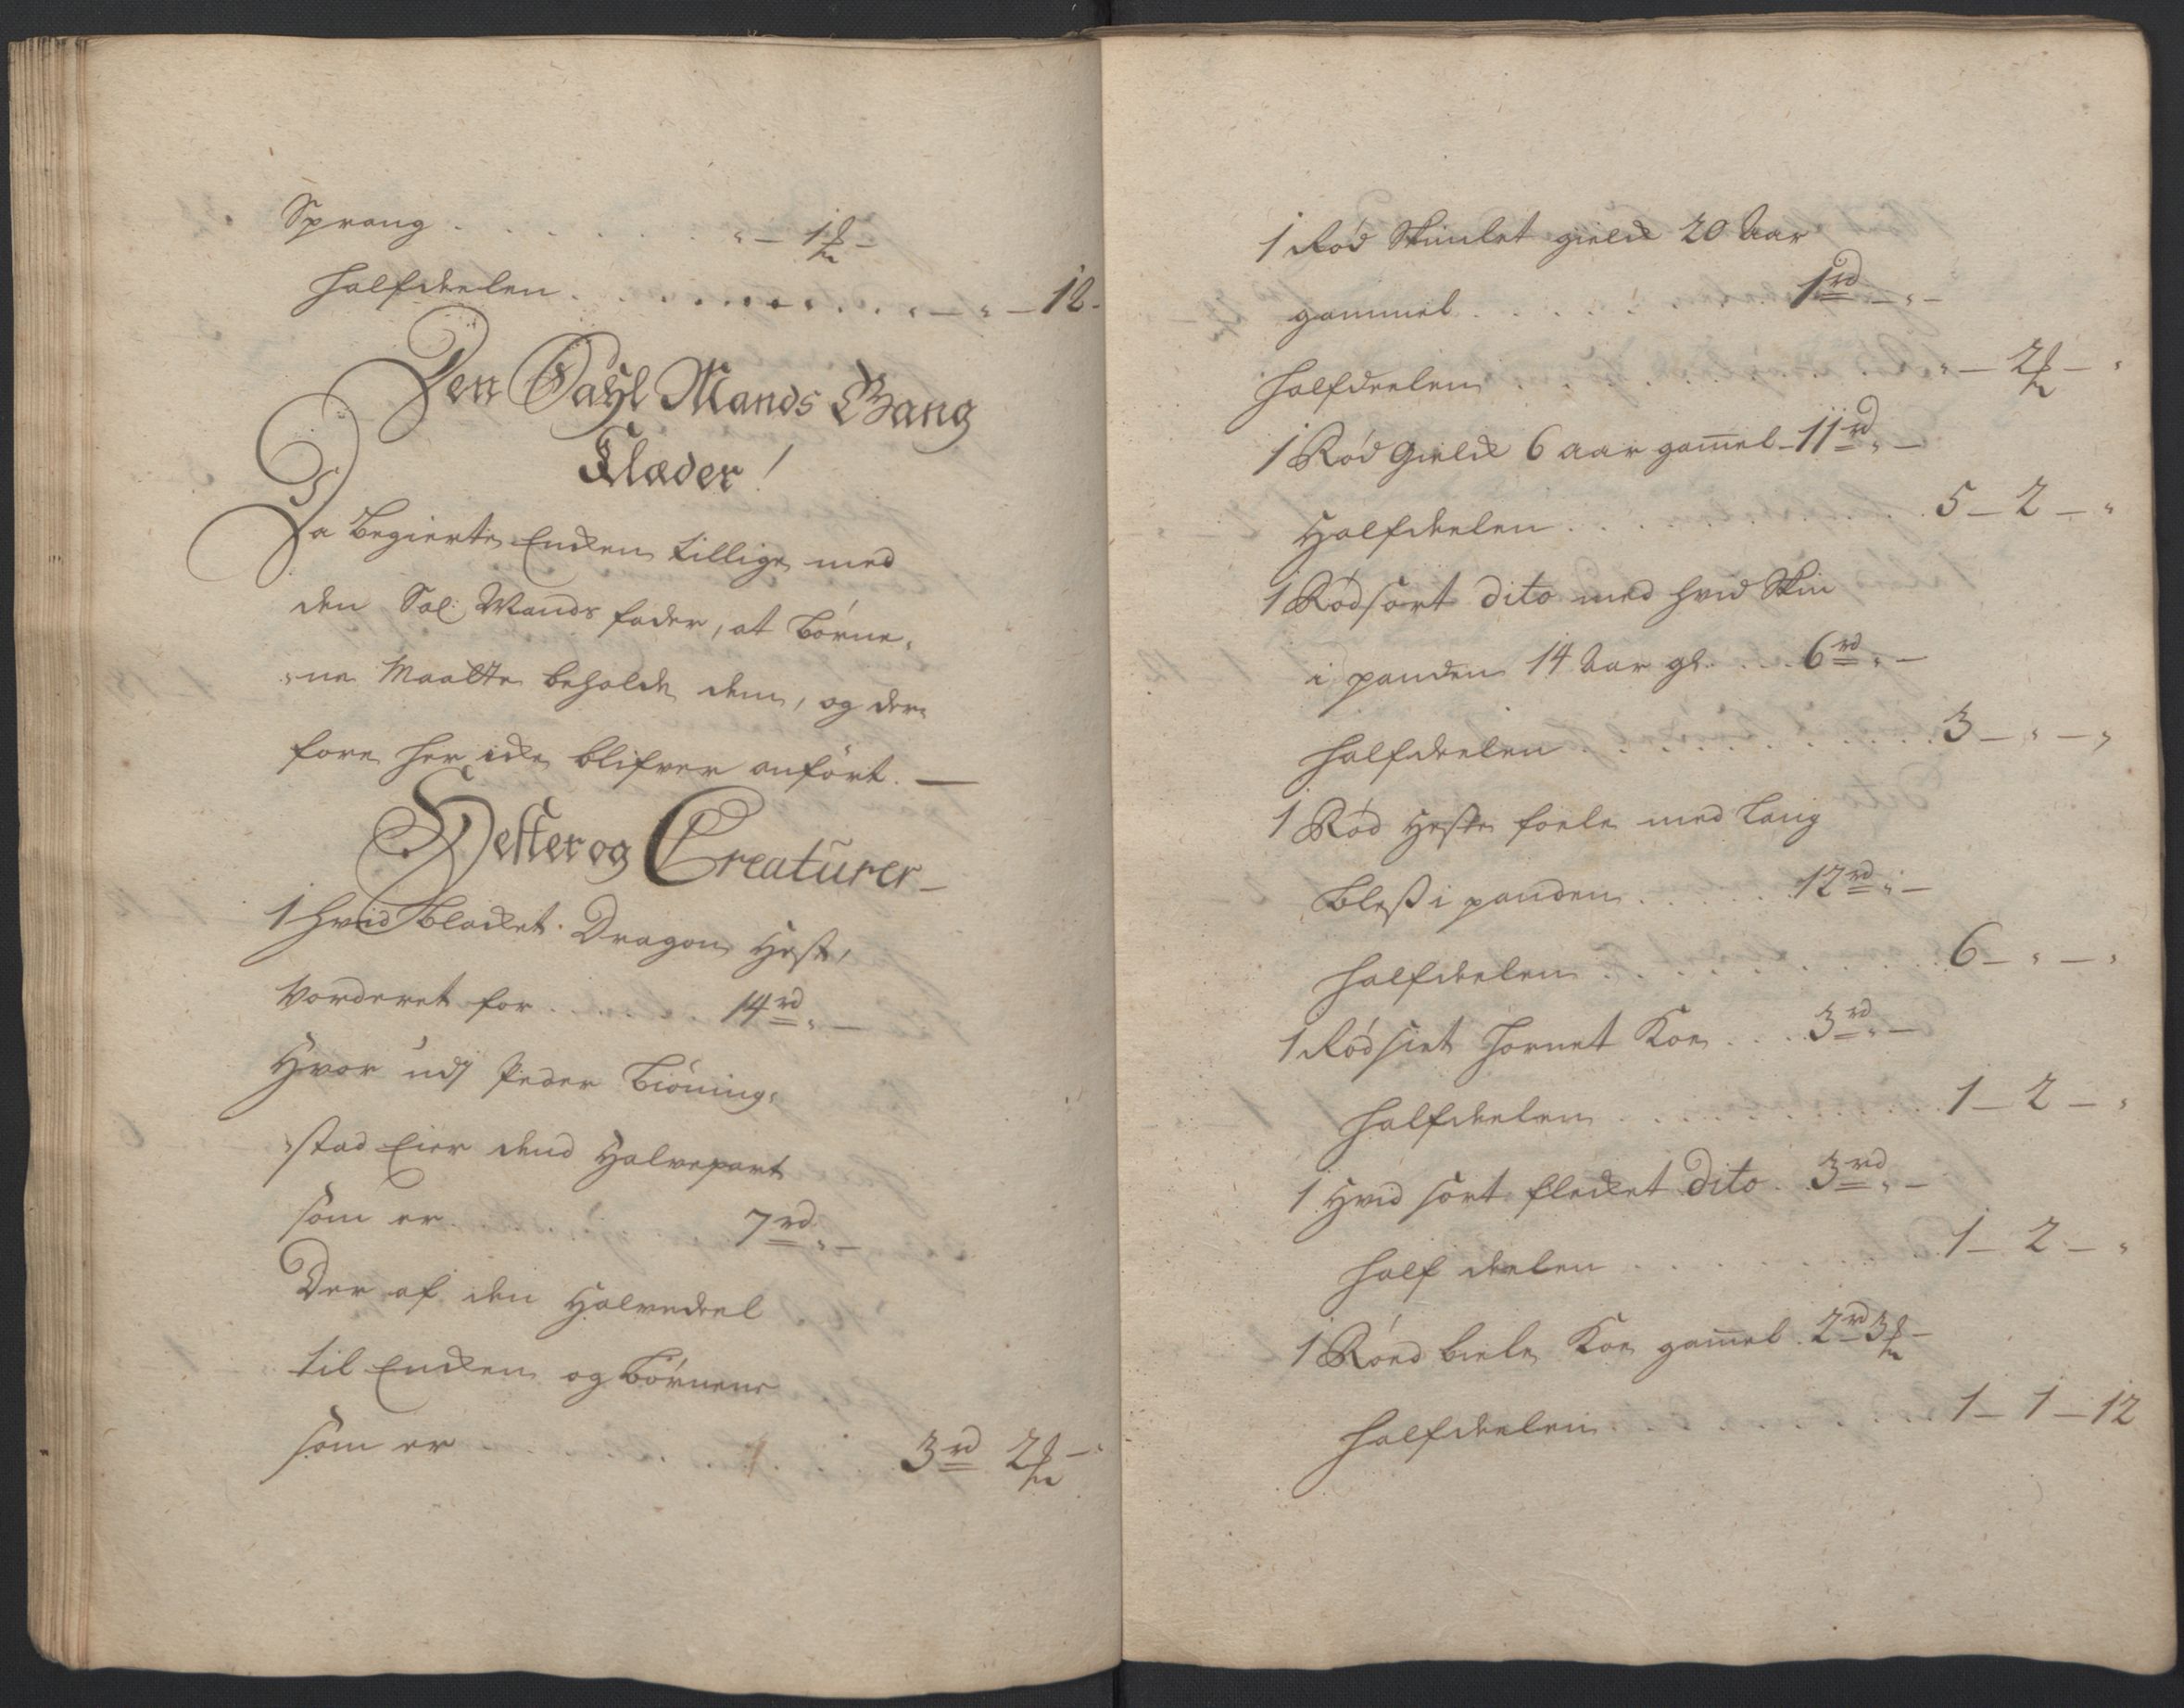 Sprang . . . . . . . „ — 1 ß —
Halfdeelen . . . . . . . . . „ — „ — 12 -
Den Sahl Mands Gang
Klæder!
Da begierte Encken tillige med
den Sal: Mands fader, at Børne,
„ne Maatte beholde dem, og der„
fore her icke blifver anført. —
Hester og Creaturer —
1 hvid blacket Dragon Hest,
Vorderet for . . . . . 14 rd „ —
Hvor udj Peder Biöning„
„stad Eier dend Halvepart
som er . . . . . 7 rd „ —
Der af den Halvedeel
til Encken og Börnene
som er . . . . . . . . . 3 rd 2 ß — „
1 Rød Skimlet gield 20 Aar
gammel . . . . . . 1 rd — „ —
Halfdeelen . . . . . . . . . . „ — 2 ß — „
1 Rød Gield 6 aar gam̄el - 11 rd „ —
Halfdeelen . . . . . . . . . . 5 — 2 — „
1 Rødsort dito med hvid Skin
i panden 14 Aar gl. . . . 6 rd „ —
Halfdeelen . . . . . . . . . . 3 — „ — „
1 Rød Heste foele med Lang
Bless i panden . . . . . 12 rd „ —
Halfdeelen . . . . . . . . . . 6 — „ — „
1 Rødsiet Hornet Koe . . . 3 rd „ —
Halfdeelen . . . . . . . . . . 1 — 2 — „
1 Hvid sort flecket Dito . 3 rd „ —
Half deelen . . . . . . . . . 1 — 2 — „
1 Röed biele Koe gam̄el . 2 rd 3 ß —
Halfdeelen . . . . . . . . . . 1 — 1 — 12